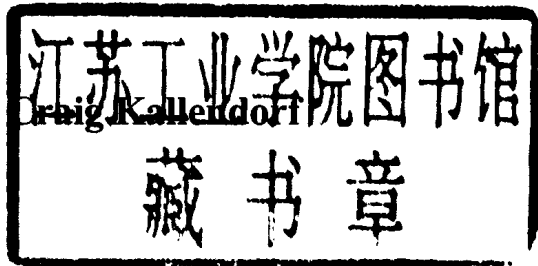 江苏工业学院图书馆
Craig Kallendorf
藏书章